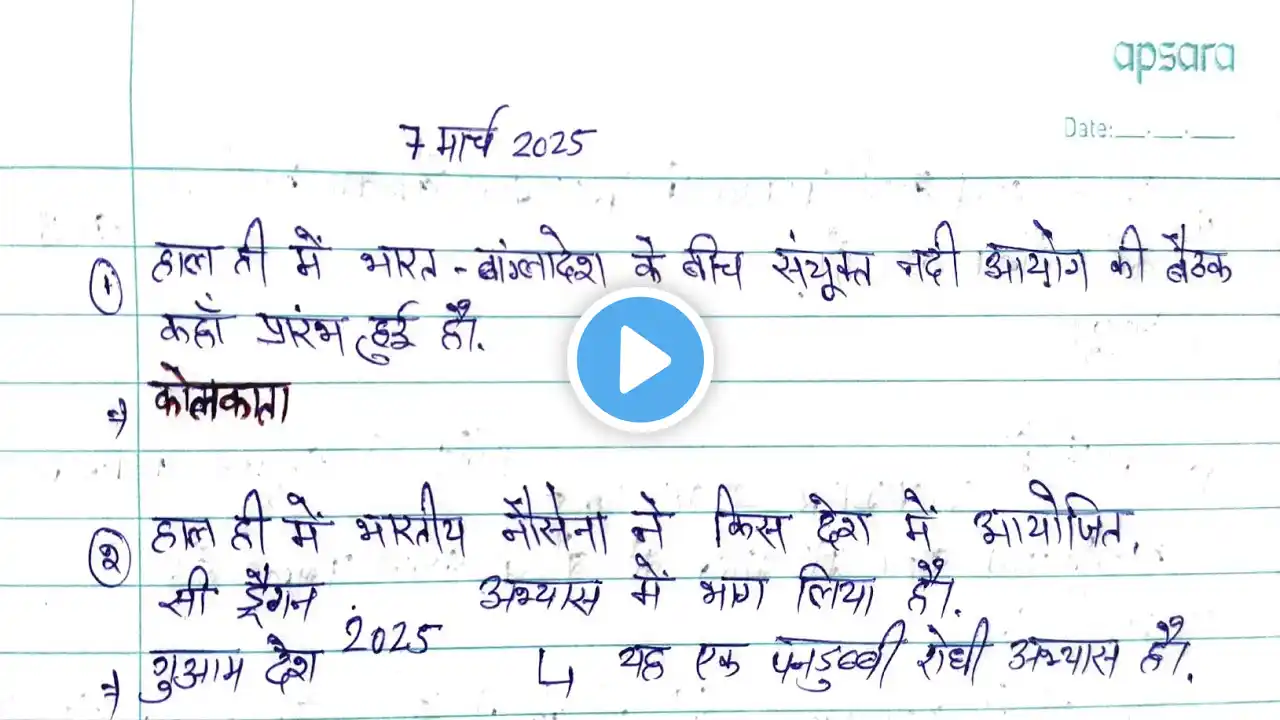 apsara
Date:__.__.__
7 मार्च 2025
① हाल ही में भारत - बांग्लादेश के बीच संयुक्त नदी आयोग की बैठक
कहाँ प्रारंभ हुई है.
⇒ कोलकाता
② हाल ही में भारतीय नौसेना ने किस देश में आयोजित,
सी ड्रैगन अभ्यास में भाग लिया है.
2025
⇒ गुआम देश ↳ यह एक पनडुब्बी रोधी अभ्यास है.